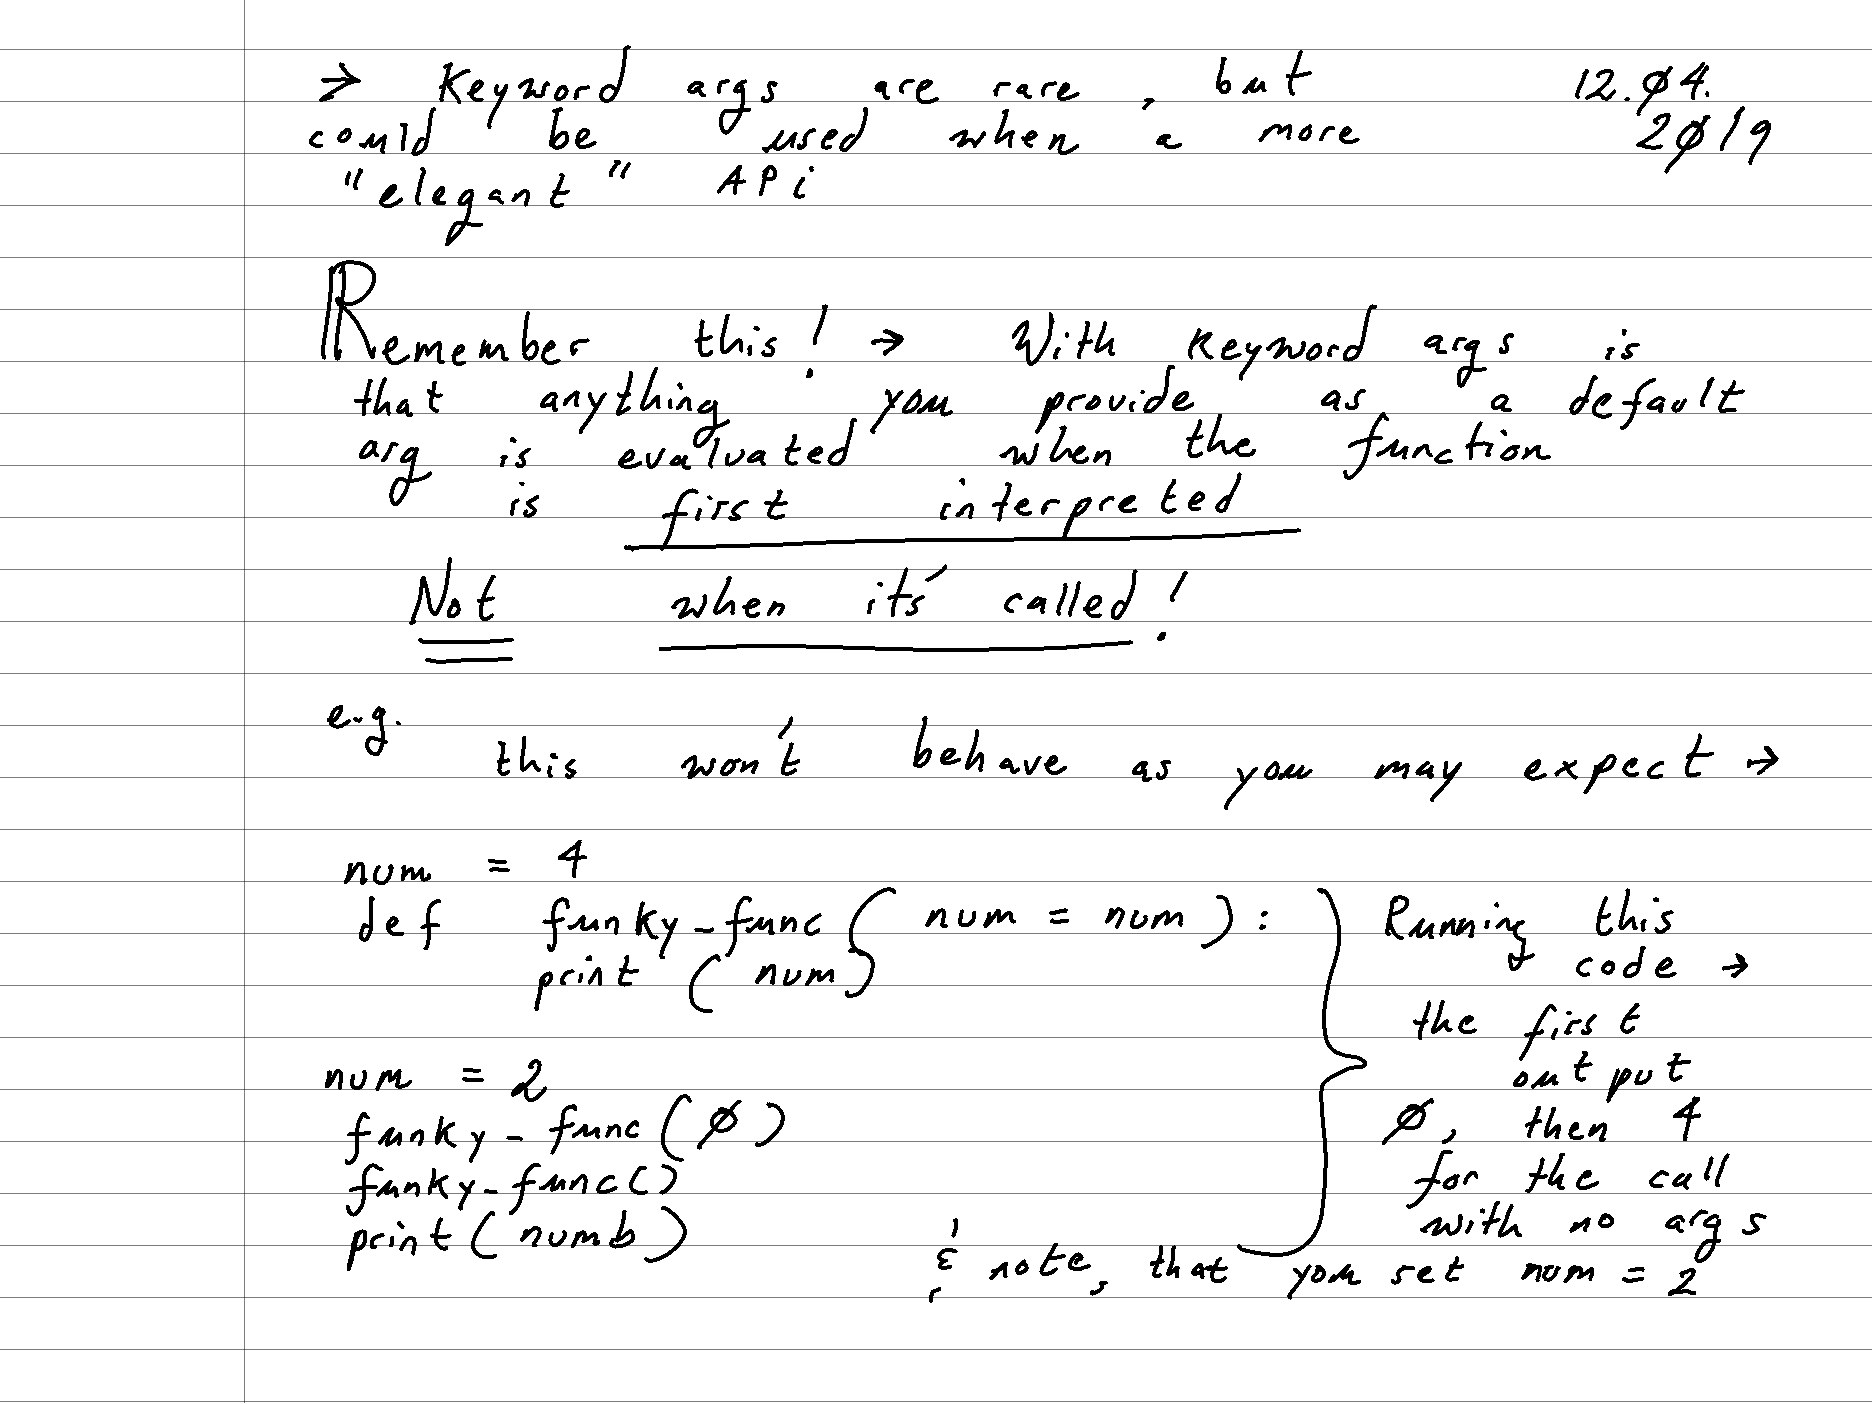 → Keyword args are rare, but
could be used when a more
"elegant" APi
12.04.
2019
Remember this! → With keyword args is
that anything you provide as a default
arg is evaluated when the function
is first interpreted
Not when it's called!
e.g.
this won't behave as you may expect →
num = 4
def funky_func(num = num):
print(num)
num = 2
funky_func(0)
funky_func()
print(numb)
Running this
code →
the first
output
0, then 4
for the call
with no args
& note, that you set num = 2